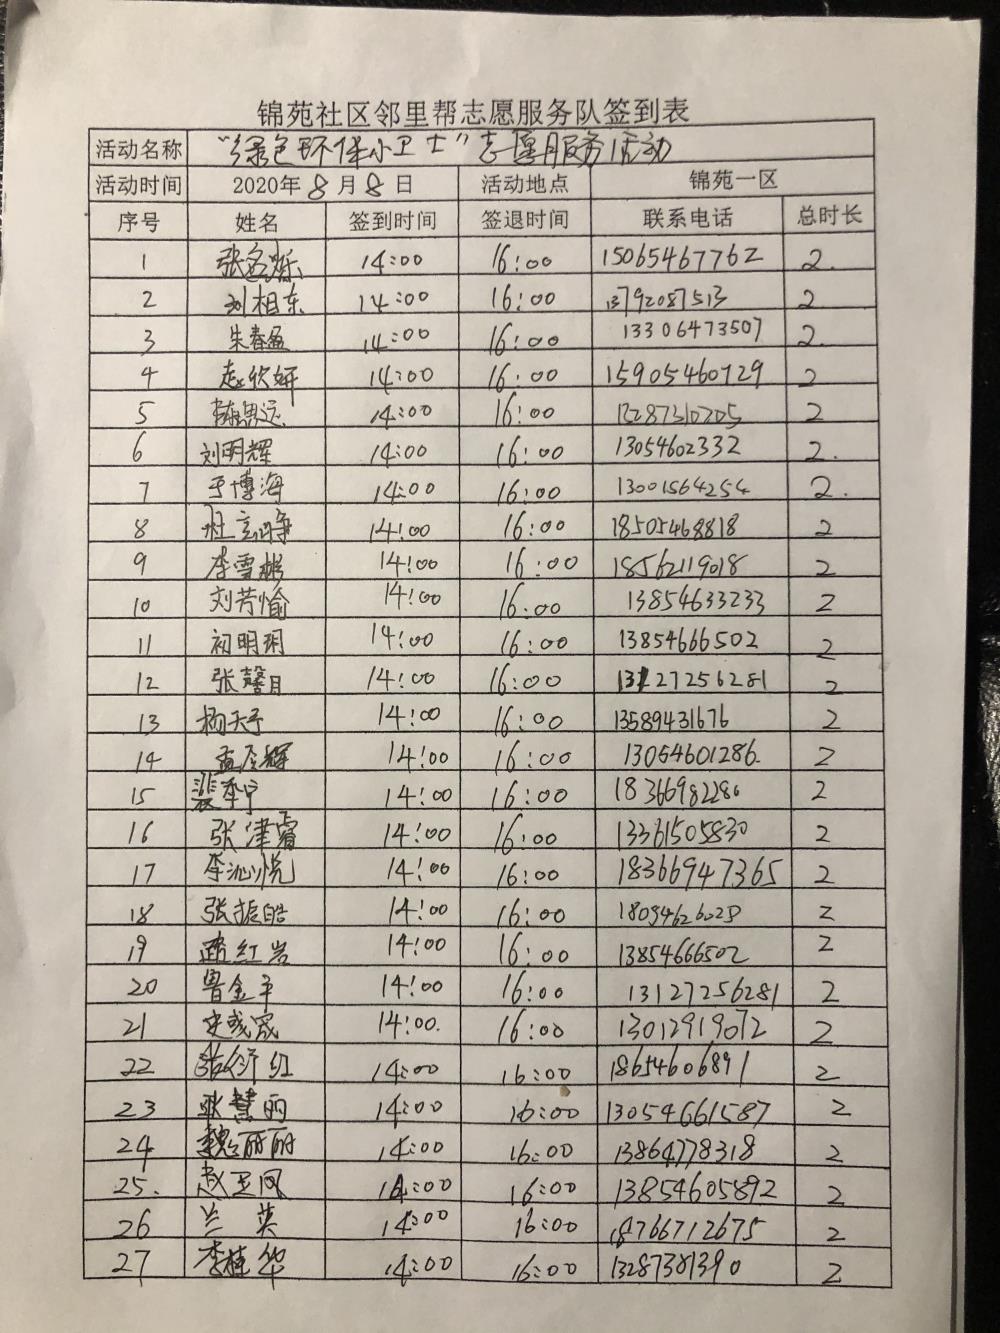 锦苑社区邻里帮志愿服务队签到表
活动名称 “绿色环保小卫士”志愿服务活动
活动时间 2020年8月8日 活动地点 锦苑一区
序号 姓名 签到时间 签退时间 联系电话 总时长
1 张 14:00 16:00 15065467762 2.
2 刘相东 14:00 16:00 13792087513 2
3 朱春盈 14:00 16:00 13306473507 2.
4 赵欣妍 14:00 16:00 15905460729 2
5 陈思远 14:00 16:00 2
6 刘明辉 14:00 16:00 13054602332 2.
7 于博海 14:00 16:00 13001564254 2.
8 杜 14:00 16:00 18505468818 2
9 李雪彬 14:00 16:00 18562119018 2
10 刘芳愉 14:00 16:00 13854633233 2
11 初明玥 14:00 16:00 13854666502 2
12 张馨月 14:00 16:00 13127256281 2
13 杨天予 14:00 16:00 13589431676 2
14 孟令辉 14:00 16:00 13054601286. 2
15 裴李宁 14:00 16:00 18366982286 2
16 张津睿 14:00 16:00 13361505830 2
17 李沁悦 14:00 16:00 18366947365 2
18 张振皓 14:00 16:00 2
19 路红岩 14:00 16:00 13854666502 2
20 曹金平 14:00 16:00 13127256281 2
21 14:00. 16:00 13012919072 2
22 张衍红 14:00 16:00 18654606891 2
23 耿慧丽 14:00 16:00 13054661587 2
24 魏丽丽 14:00 16:00 13864778318 2
25. 赵卫凤 14:00 16:00 13854605892 2
26 兰英 14:00 16:00 18766712675 2
27 李桂华 14:00 16:00 13287381390 2